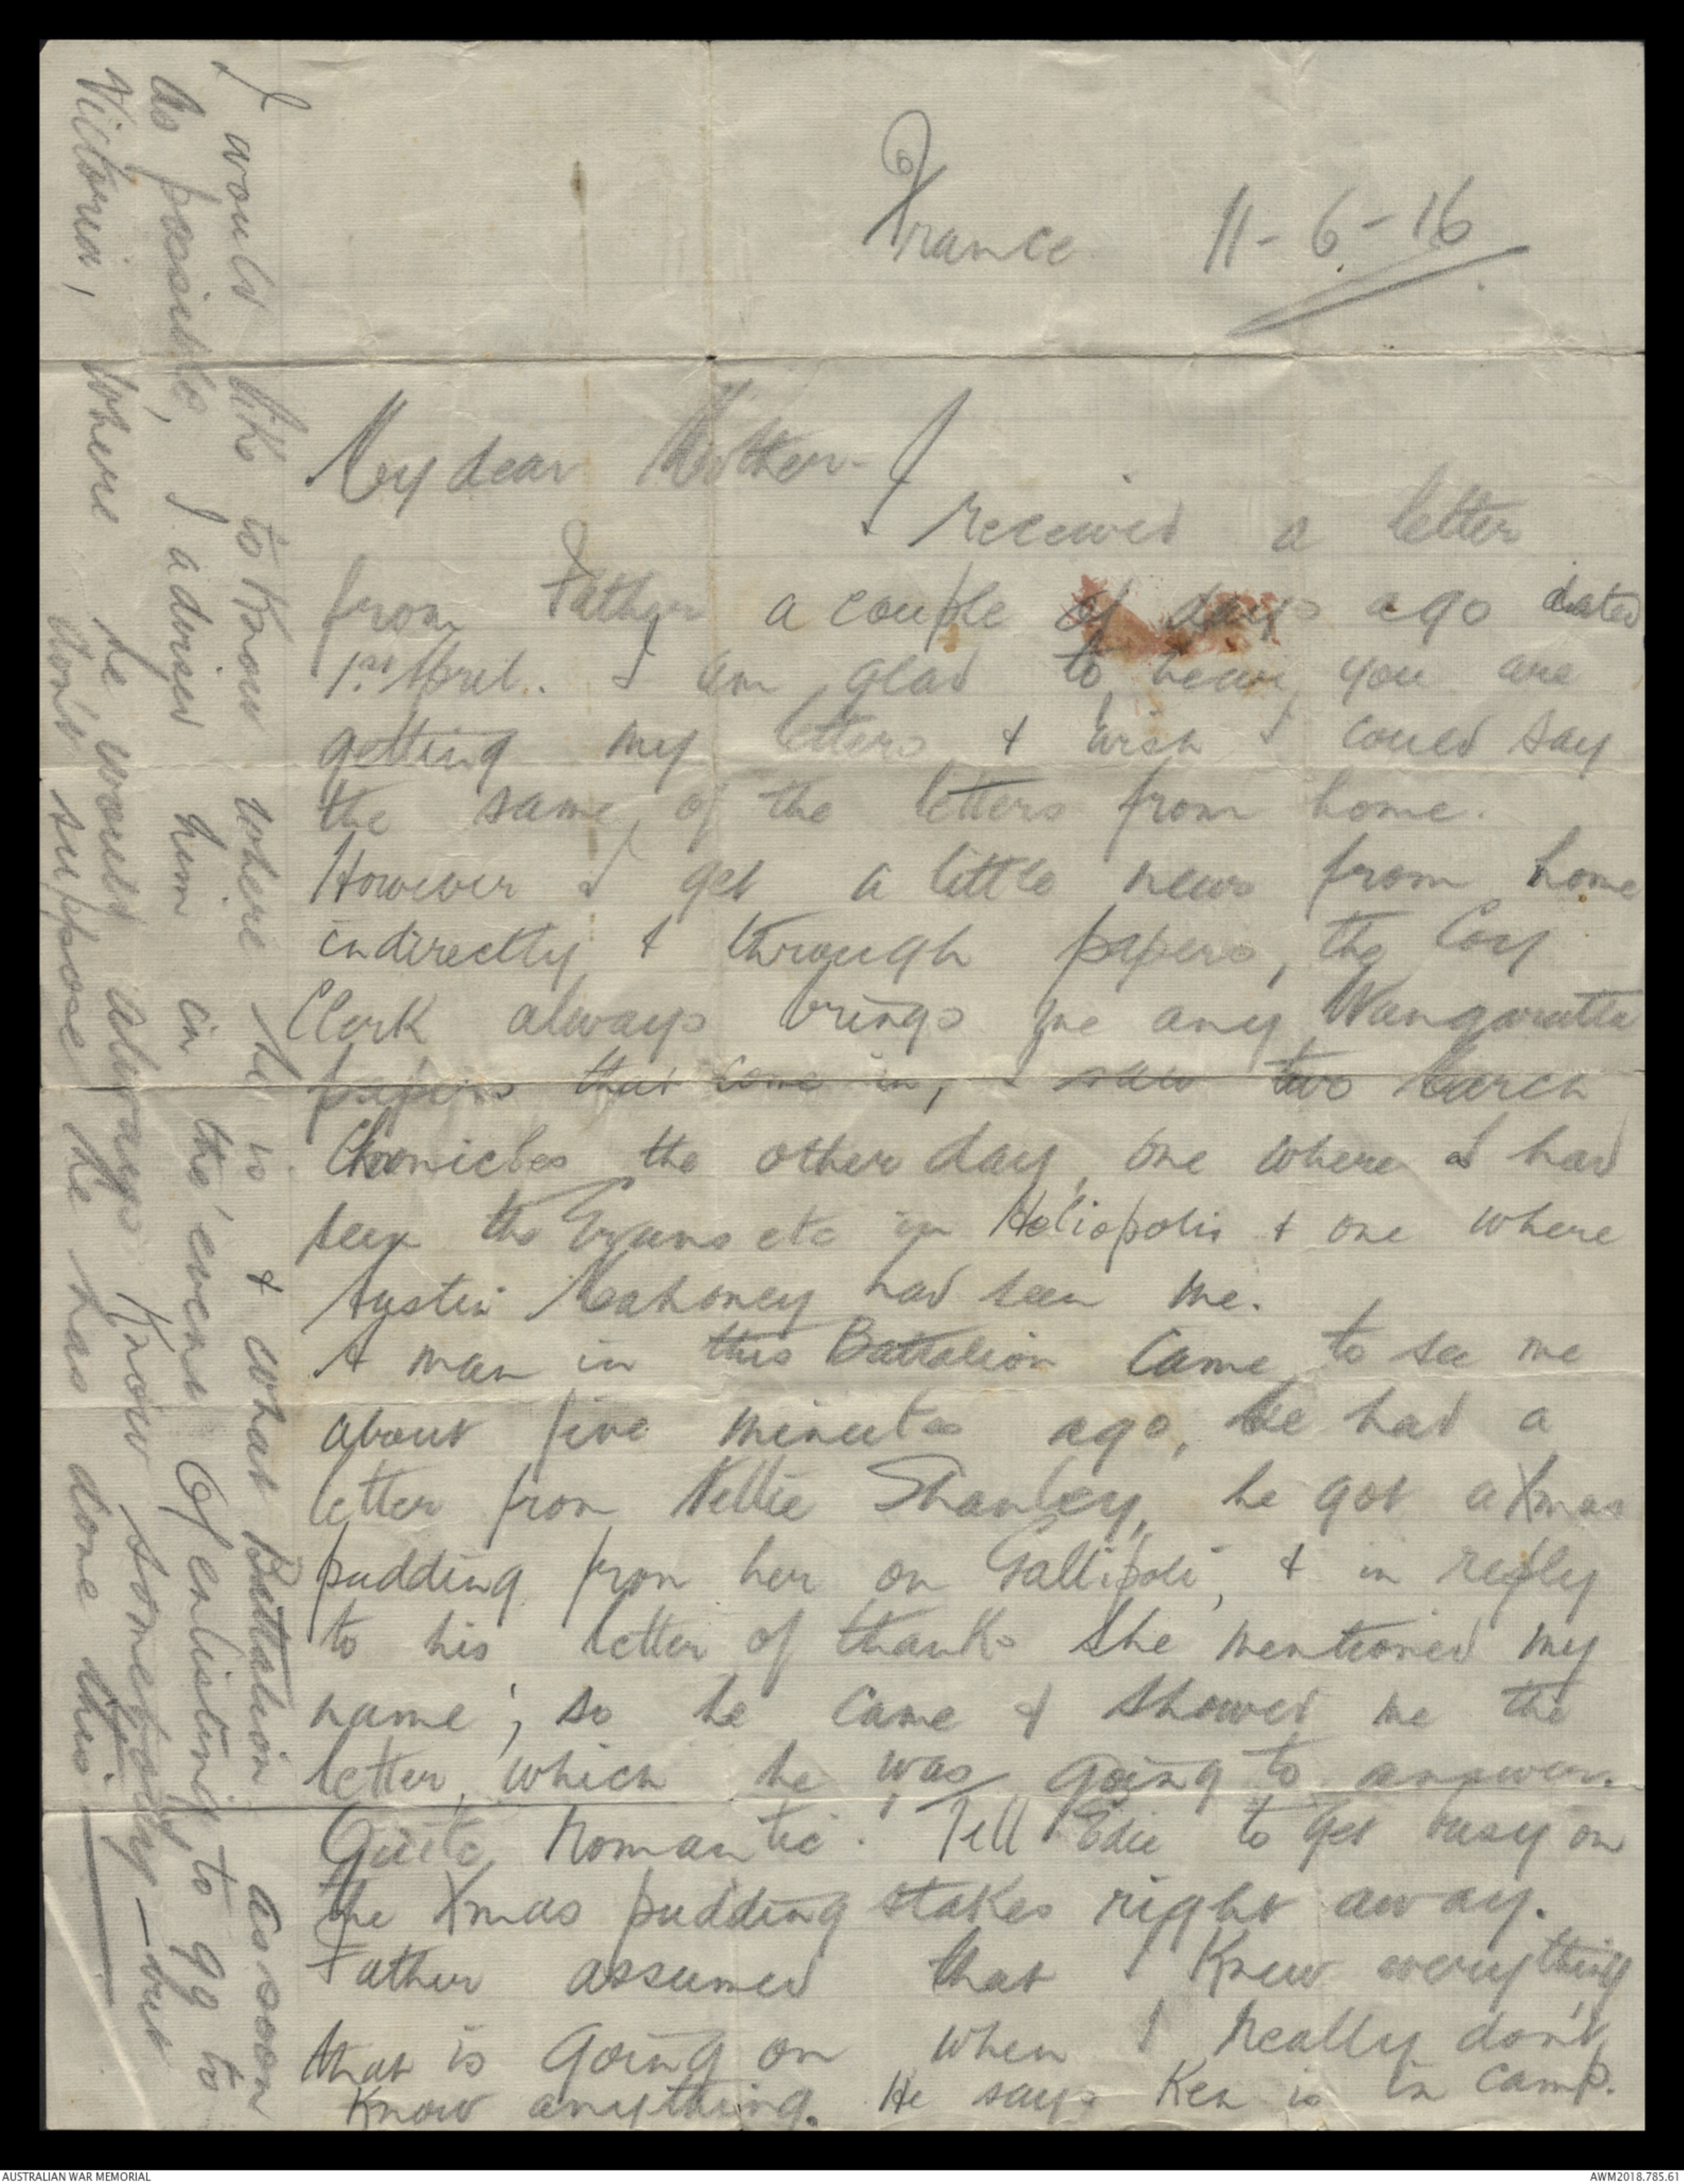 France 11-6-16
My dear Mother-
I received a letter
from Father a couple of days ago dated
1st April. I am glad to hear you are
getting my letters & wish I could say
the same, of the letters from home.
However I get a little news from home
indirectly & through papers, the Coy
Clerk always brings me any Wangaratta
papers that come in, I saw two March
Chronicles the other day, one where I had
seen the Evans etc in Heliopolis & one where
Austin Mahoney had seen me.
A man in this Battalion came to see me
about five minutes ago, he had a
letter from Nellie Shanley, he got a Xmas
pudding from her on Gallipoli, & in reply
to his letter of thanks she mentioned my
name; so he came & showed me the
letter, which he was going to answer.
Quite Romantic. Tell Edie to get busy on
the Xmas pudding stakes right away.
Father assumed that I knew everything
that is going on when I really don't
know anything. He says Ken is in camp.
I would like to know where he is & what Battalion as soon
as possible, I advised him in the event of enlisting, to go to
Victoria, where he would always know somebody - but
don't suppose he has done this.
AUSTRALIAN WAR MEMORIAL
AWM2018.785.61